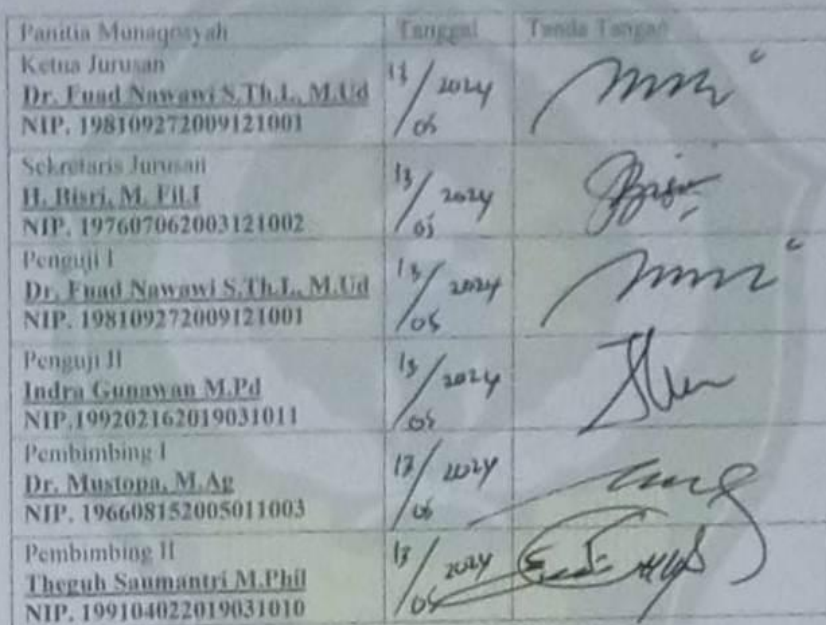 Panitia Munaqosyah Tanggal Tanda Tangan
Ketua Jurusan
Dr. Fuad Nawawi S.Th.I., M.Ud
NIP. 198109272009121001
13/05 2024
Sekretaris Jurusan
H. Bisri, M. Fil.I
NIP. 197607062003121002
13/05 2024
Penguji I
Dr. Fuad Nawawi S.Th.I., M.Ud
NIP. 198109272009121001
13/05 2024
Penguji II
Indra Gunawan M.Pd
NIP.199202162019031011
13/05 2024
Pembimbing I
Dr. Mustopa, M.Ag
NIP. 196608152005011003
13/05 2024
Pembimbing II
Theguh Saumantri M.Phil
NIP. 199104022019031010
13/05 2024